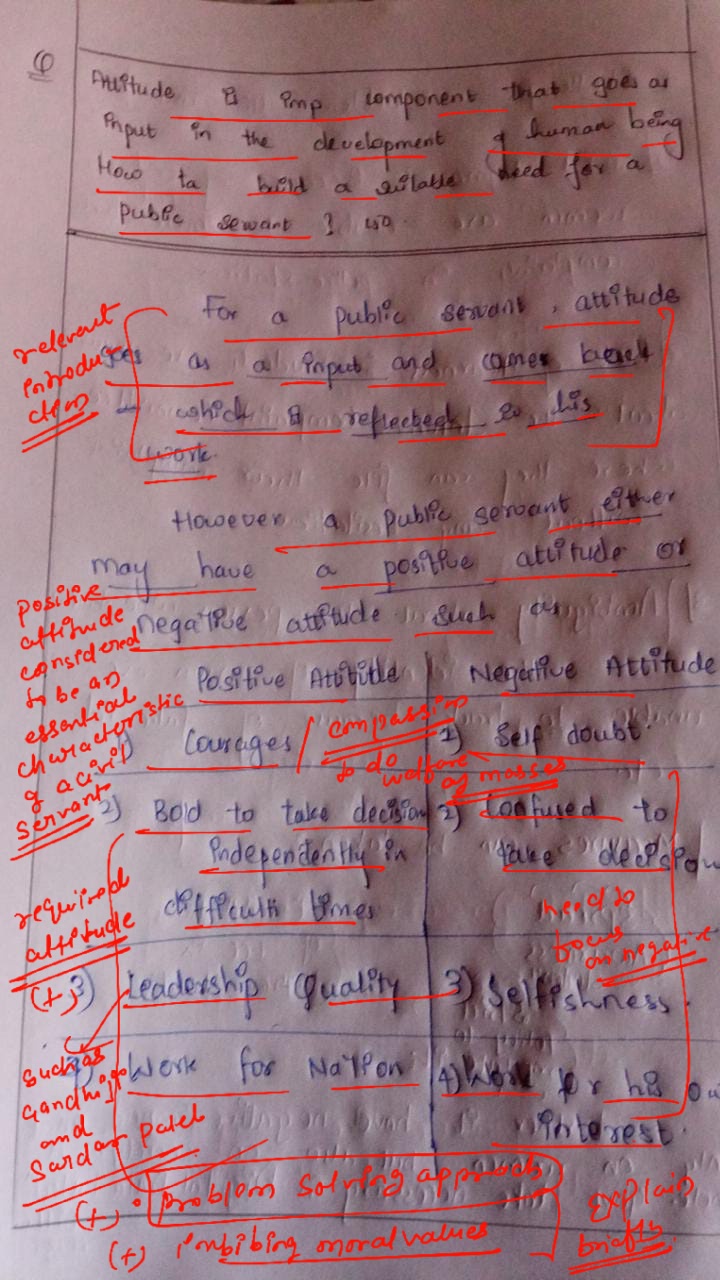 Q
Attitude is imp component that goes as
input in the development of human being
How to build a suitable need for a
public servant ?
For a public servant, attitude
goes as a input and comes
which is reflected in his
work.
relevant
introduc
tion
However a public servant either
may have a positive attitude or
negative attitude such as
positive
attitude
considered
to be an
essential
characteristic
of a civil
servant
Positive Attitude | Negative Attitude
1) Courages / compassion | 1) Self doubt.
to do welfare
of masses
2) Bold to take decision | 2) Confused to
independently in | take decision
difficult times
required
attitude
need to
focus
on negative
(+) 3) Leadership Quality | 3) Selfishness.
such as
Gandhiji
and
Sardar Patel
4) Work for Nation | 4) Work for his ow
interest.
(+) • Problem Solving approach
(+) imbibing moral values
explain
briefly